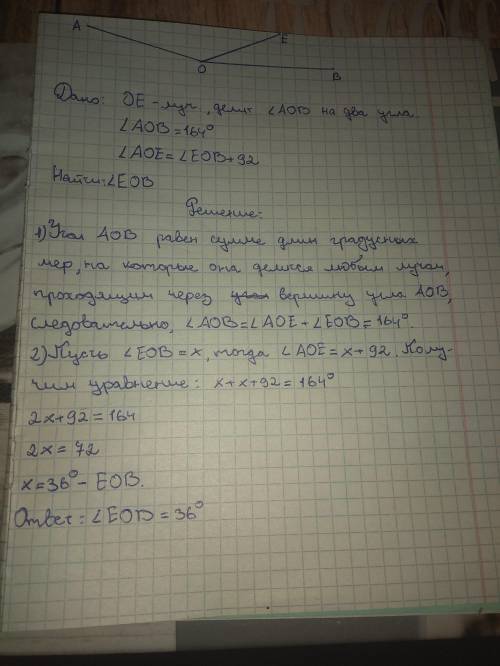 A
E
O
B
Дано: OE - луч, делит ∠AOB на два угла.
∠AOB = 164°
∠AOE = ∠EOB + 92
Найти: ∠EOB
Решение:
1) Угол AOB равен сумме длин градусных
мер, на которые она делится любым лучом,
проходящим через вершину угла AOB,
следовательно, ∠AOB = ∠AOE + ∠EOB = 164°.
2) Пусть ∠EOB = x, тогда ∠AOE = x + 92. Полу-
чим уравнение: x + x + 92 = 164°
2x + 92 = 164
2x = 72
x = 36° - EOB.
Ответ: ∠EOB = 36°